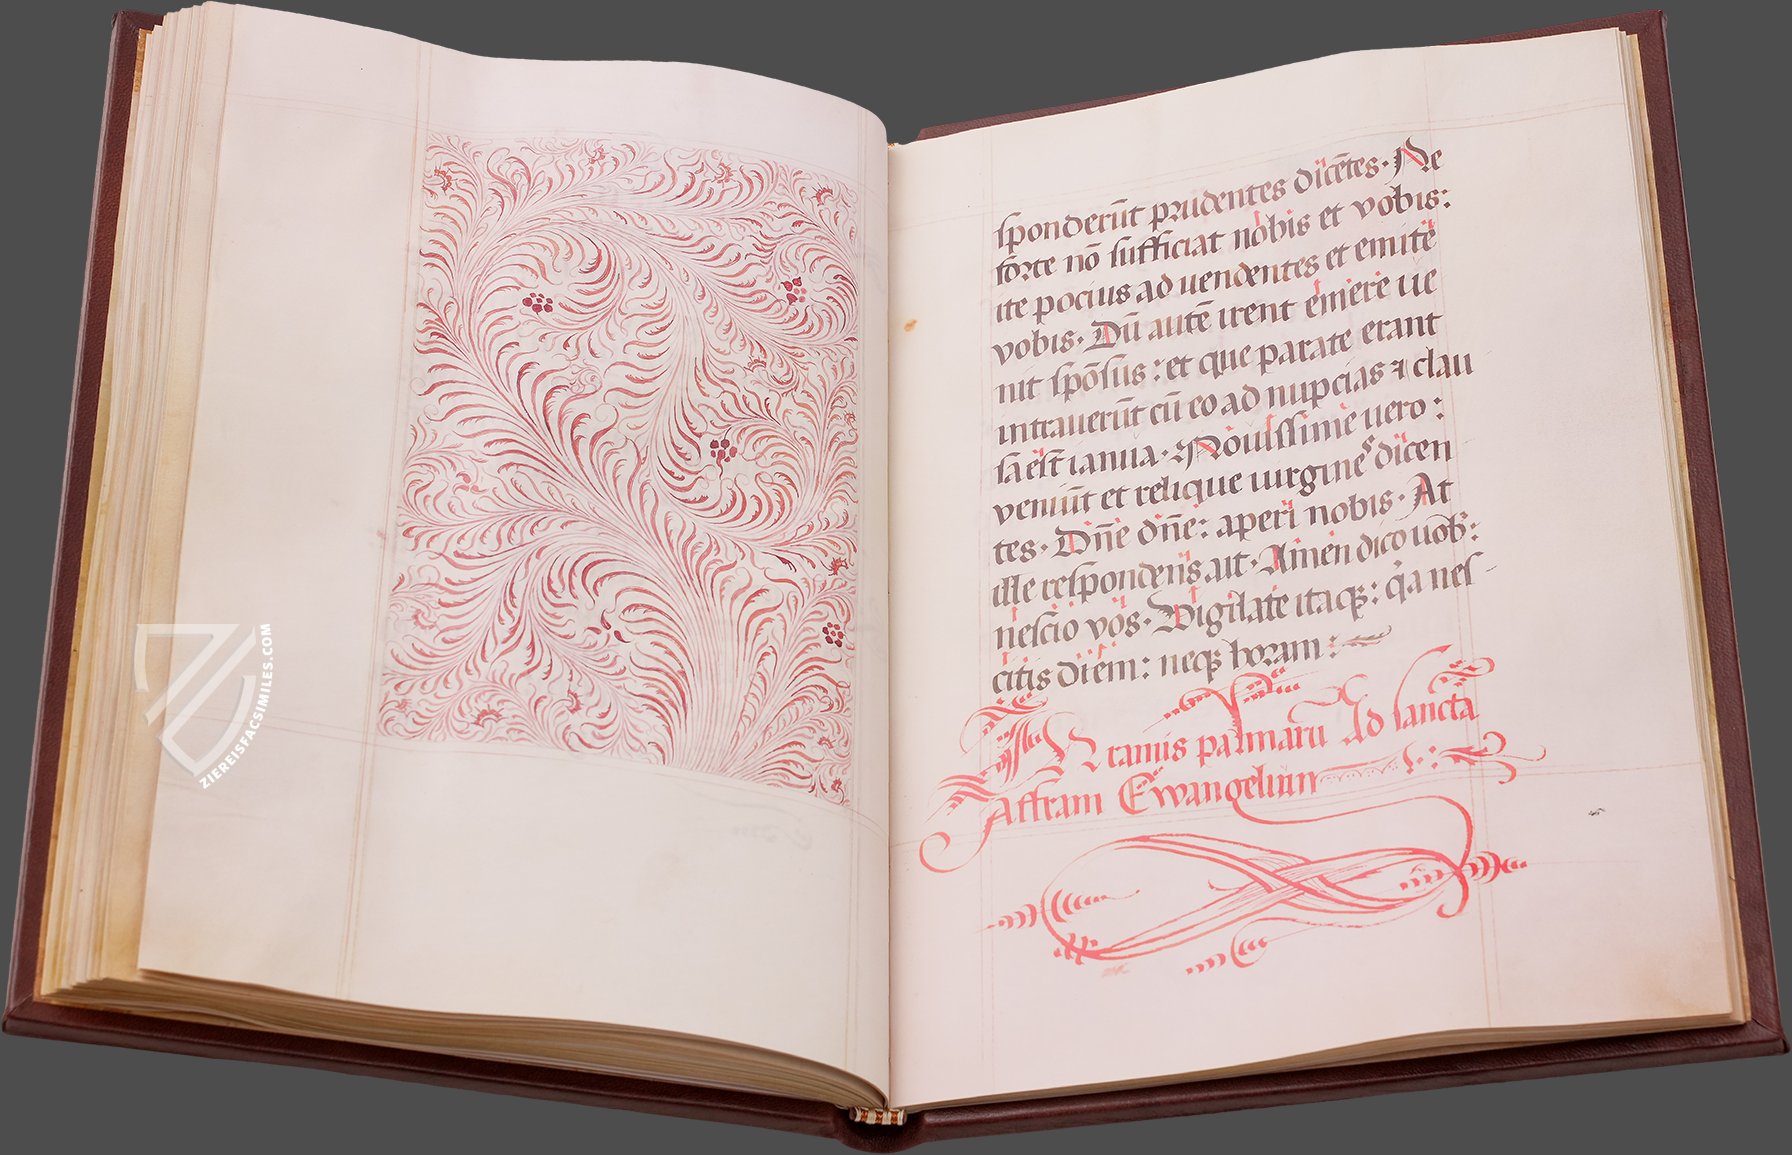 ZIEREISFACSIMILES.COM
sponderūt prudentes dicētes· Ne
forte nō sufficiat nobis et vobis:
ite pocius ad uendentes et emite
vobis· Dū autē irent emere ue
nit spōsus: et que parate erant
intrauerūt cū eo ad nupcias ⁊ clau
sa est ianua· Nouissime uero:
veniūt et relique uirgines dicen
tes· Dn̄e dn̄e: aperi nobis· At
ille respondens ait· Amen dico uob:
nescio vos· Vigilate itaqꝫ: q̇a nes-
citis diem: neqꝫ horam:
ramis palmarū Ad sanctā
Affram Ewangelium